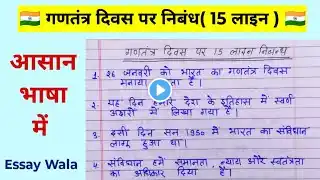 गणतंत्र दिवस पर निबंध( 15 लाइन )
आसान
भाषा
में
Essay Wala
गणतंत्र दिवस पर 15 लाइन निबन्ध
1. 26 जनवरी को भारत का गणतंत्र दिवस
मनाया जाता है।
2. यह दिन हमारे देश के इतिहास में स्वर्ण
अक्षरों में लिखा गया है।
3. इसी दिन सन 1950 में भारत का संविधान
लागू हुआ था।
4. संविधान हमें समानता, न्याय और स्वतंत्रता
का अधिकार दिया है।